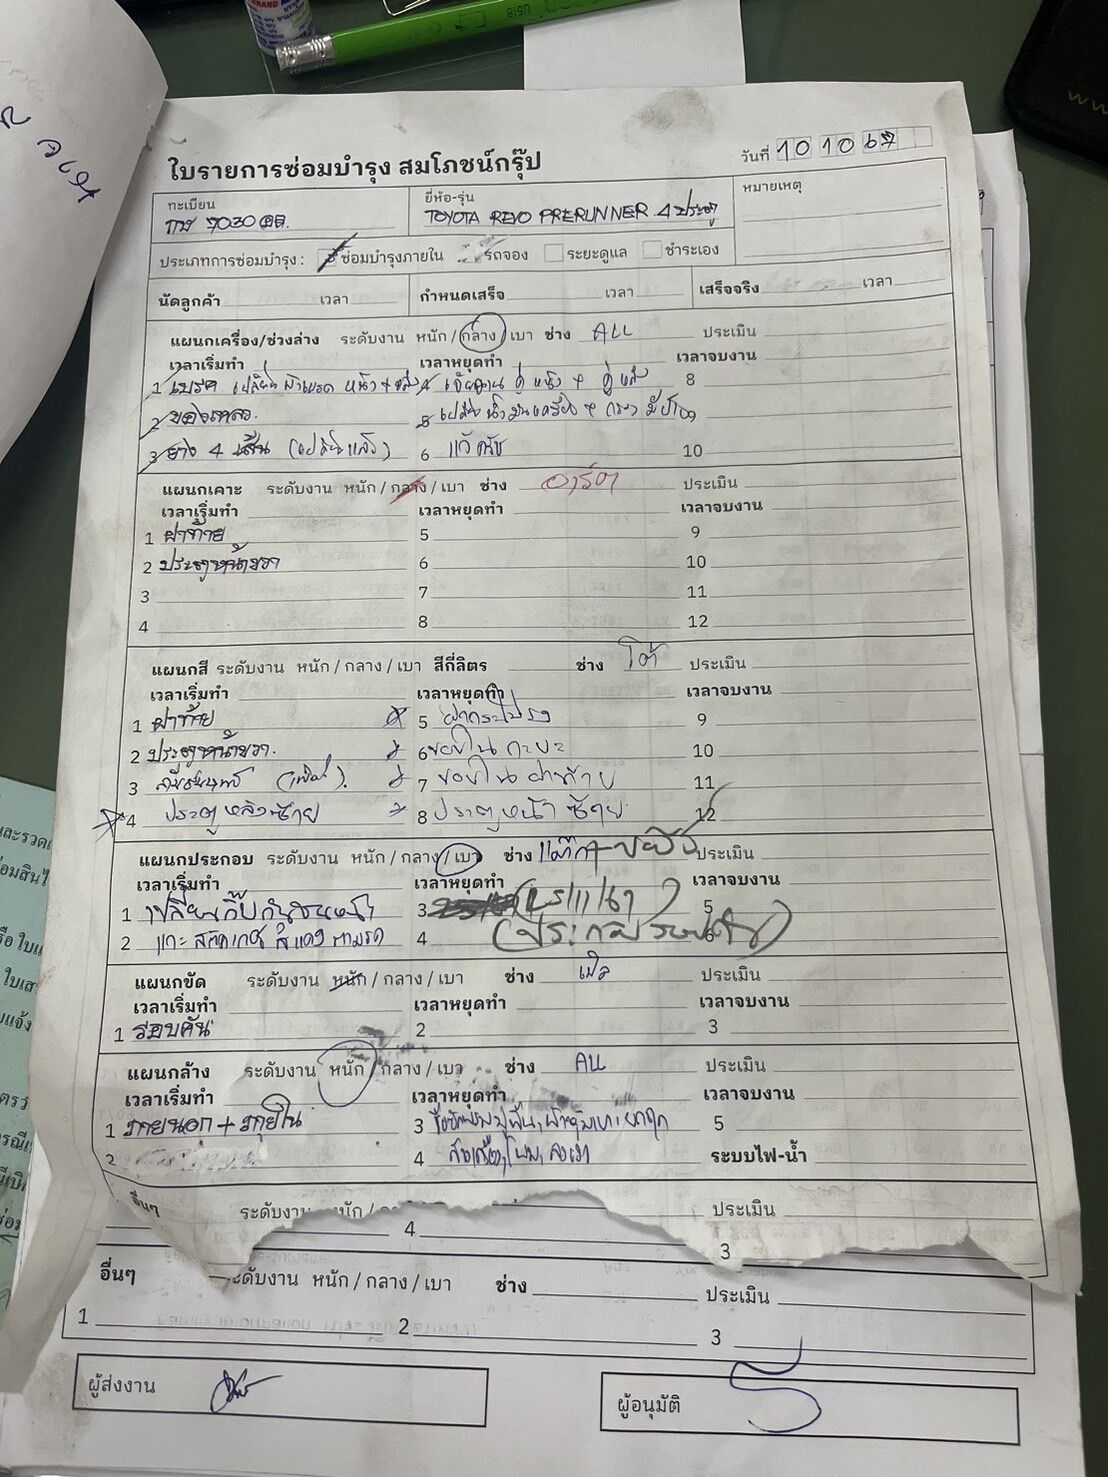 ใบรายการซ่อมบำรุง สมโภชน์กรุ๊ป
วันที่ 10 10 67
ทะเบียน
ยี่ห้อ-รุ่น
หมายเหตุ
7030
TOYOTA REVO PRERUNNER 4 ประตู
ประเภทการซ่อมบำรุง : ซ่อมบำรุงภายใน รถจอง ระยะดูแล ชำระเอง
นัดลูกค้า เวลา กำหนดเสร็จ เวลา เสร็จจริง เวลา
แผนกเครื่อง/ช่วงล่าง ระดับงาน หนัก / กลาง / เบา ช่าง ALL ประเมิน
เวลาเริ่มทำ เวลาหยุดทำ เวลาจบงาน
1 เบรค เปลี่ยนผ้าเบรค หน้า + หลัง 4 เจียจาน คู่ หน้า + คู่ หลัง 8
2 ของเหลว 5 เปลี่ยน น้ำมันเครื่อง + กรอง 9
3 ยาง 4 เส้น (เปลี่ยนแล้ว) 6 10
แผนกเคาะ ระดับงาน หนัก / กลาง / เบา ช่าง ประเมิน
เวลาเริ่มทำ เวลาหยุดทำ เวลาจบงาน
1 ฝาท้าย 5 9
2 ประตูหน้าขวา 6 10
3 7 11
4 8 12
แผนกสี ระดับงาน หนัก / กลาง / เบา สีกี่ลิตร ช่าง โต้ ประเมิน
เวลาเริ่มทำ เวลาหยุดทำ เวลาจบงาน
1 ฝาท้าย 5 ฝากระโปรง 9
2 ประตูหน้าขวา. 6 ขอบใน กะบะ 10
3 7 ขอบใน ฝาท้าย 11
4 ประตู หลังซ้าย 8 ประตู หน้า ซ้าย 12
แผนกประกอบ ระดับงาน หนัก / กลาง / เบา ช่าง ประเมิน
เวลาเริ่มทำ เวลาหยุดทำ เวลาจบงาน
1 เปลี่ยนกิ๊บกันชนหน้า 3 5
2 แกะ สติกเกอร์ 4 6
แผนกขัด ระดับงาน หนัก / กลาง / เบา ช่าง ประเมิน
เวลาเริ่มทำ เวลาหยุดทำ เวลาจบงาน
1 รอบคัน 2 3
แผนกล้าง ระดับงาน หนัก / กลาง / เบา ช่าง ALL ประเมิน
เวลาเริ่มทำ เวลาหยุดทำ เวลาจบงาน
1 ภายนอก + ภายใน 3 5
2 4 ระบบไฟ-น้ำ
อื่นๆ ระดับงาน หนัก / ประเมิน
4 3
อื่นๆ ระดับงาน หนัก / กลาง / เบา ช่าง ประเมิน
1 2 3
ผู้ส่งงาน
ผู้อนุมัติ